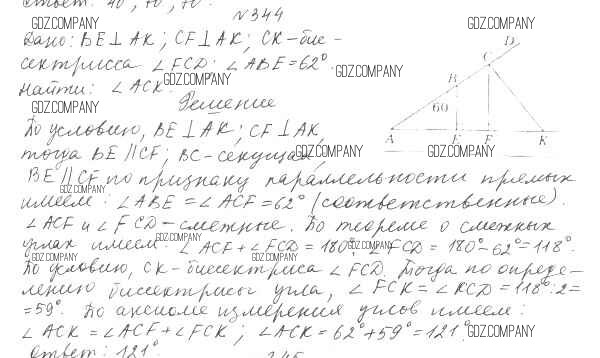 ответ: 40°, 70°, 70°.
№344
GDZ.COMPANY
Дано: BE⊥AK; CF⊥AK; CK-бис-
сектрисса ∠FCD; ∠ABE=62°.
GDZ.COMPANY
Найти: ∠ACK.
GDZ.COMPANY
GDZ.COMPANY
Решение
D
C
B
60
A E F K
По условию, BE⊥AK; CF⊥AK,
тогда BE∥CF; BC-секущая,
GDZ.COMPANY
GDZ.COMPANY
BE∥CF по признаку параллельности прямых
GDZ.COMPANY
имеем: ∠ABE=∠ACF=62° (соответственные).
∠ACF и ∠FCD-смежные. По теореме о смежных
GDZ.COMPANY
углах имеем: ∠ACF+∠FCD=180°; ∠FCD=180°-62°=118°.
GDZ.COMPANY
GDZ.COMPANY
GDZ.COMPANY
По условию, CK-биссектриса ∠FCD. Тогда по опреде-
лению биссектрисы угла, ∠FCK=∠KCD=118°:2=
=59°. По аксиоме измерения углов имеем:
∠ACK=∠ACF+∠FCK; ∠ACK=62°+59°=121°.
GDZ.COMPANY
Ответ: 121°.
345